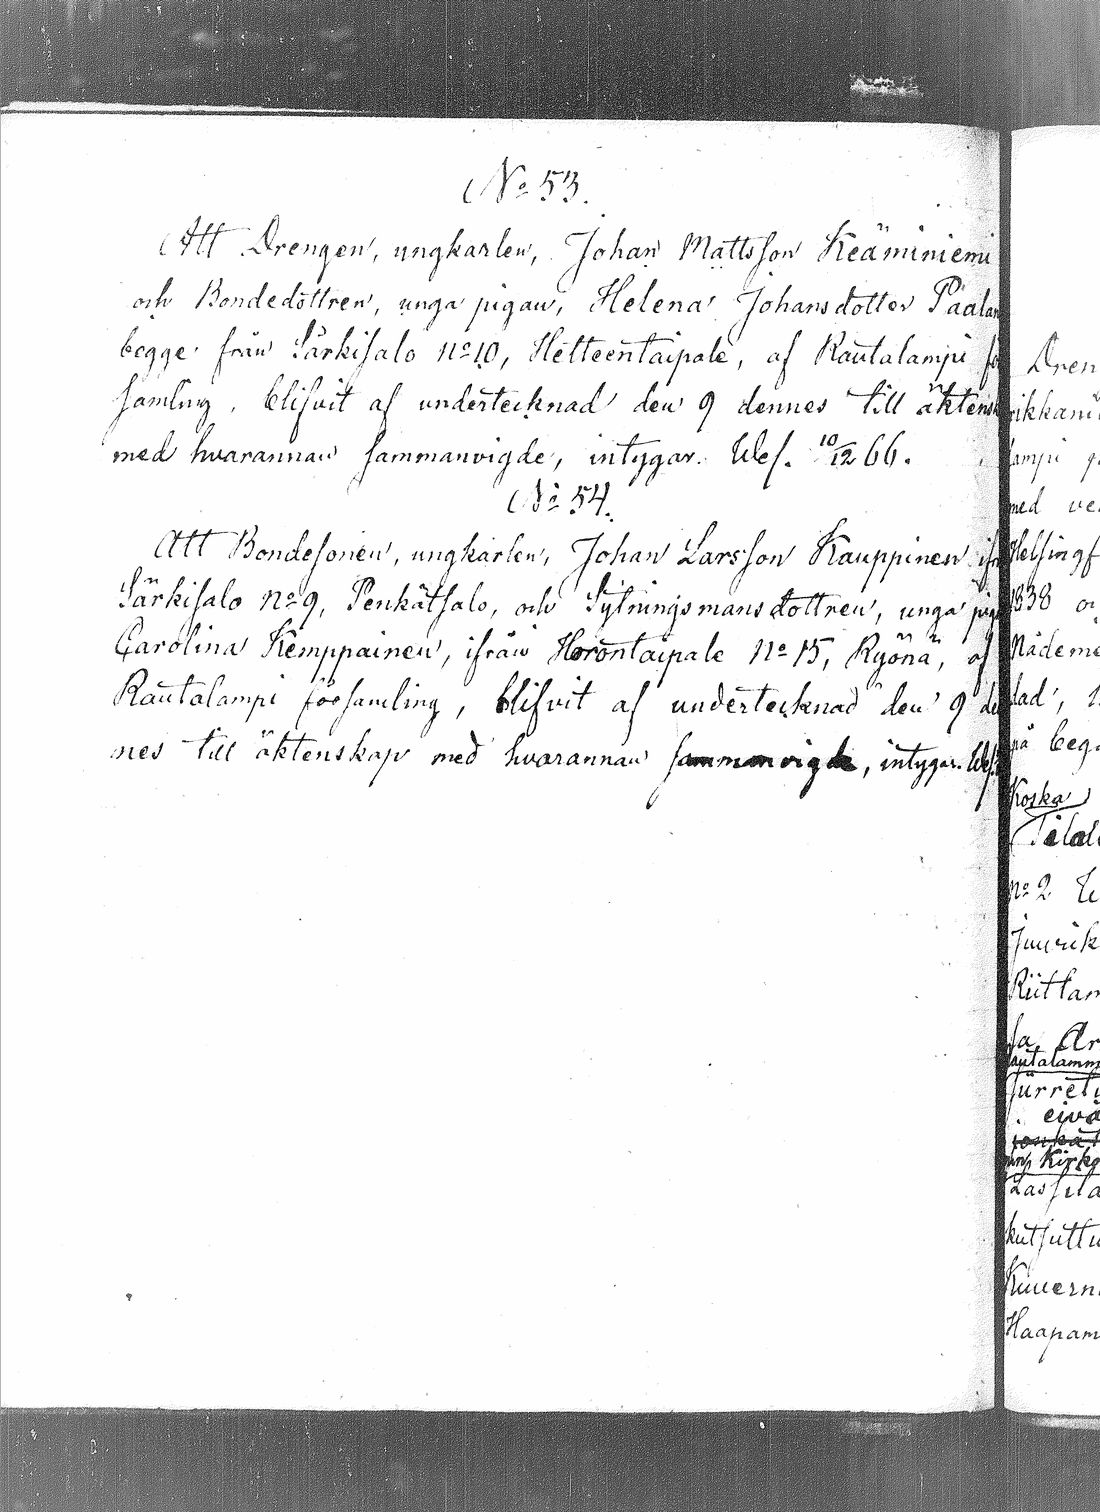 No 53.
Att Drengen, ungkarlen, Johan Mattsson Keäminiemi
och Bondedottren, unga pigan, Helena Johansdotter Pääla
begge från Särkisalo No 10, Hetteentaipale, af Rautalampi fö
samling, blifvit af undertecknad den 9 dennes till äktensk
med hvarannan sammanvigde, intygar. Wes. 10/12 66.
No 54.
Att Bondesonen, ungkarlen, Johan Larsson Kauppinen ifr
Särkisalo No 9, Penkätsalo, och Sytningsmansdottren, unga pig
Carolina Kemppainen, ifrån Horontaipale No 15, Ryönä, af
Rautalampi församling, blifvit af undertecknad den 9 de
nes till äktenskap med hvarannan sammanvigde, intygar. Wes.
Dren
rikkani
lampi
med ve
Helsingf
1838
Rådeme
dad,
på bega
Koska
Tilal
No 2
Juurik
Riittam
sa Ar
autalamm
Jürret
eivä
Kirko
Lassila
kutsuttu
Kuvern
Haapam